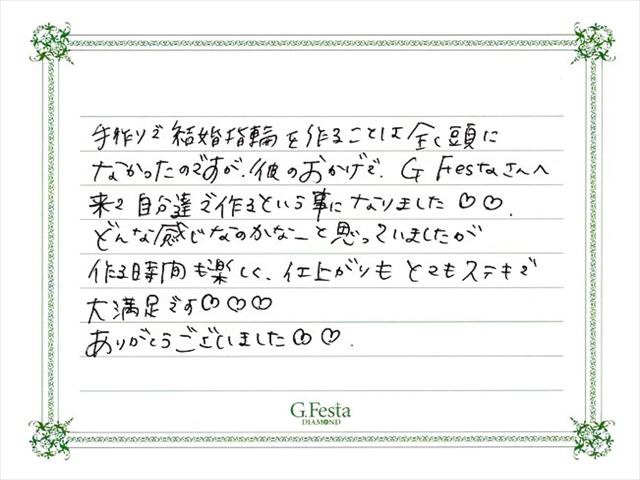 手作りで結婚指輪を作ることは全く頭に
なかったのですが、彼のおかげで、G Festaさんへ
来て自分達で作るという事になりました♡♡.
どんな感じなのかなーと思っていましたが
作る時間も楽しく、仕上がりもとてもステキで
大満足です♡♡♡
ありがとうございました♡♡.
G.Festa
DIAMOND